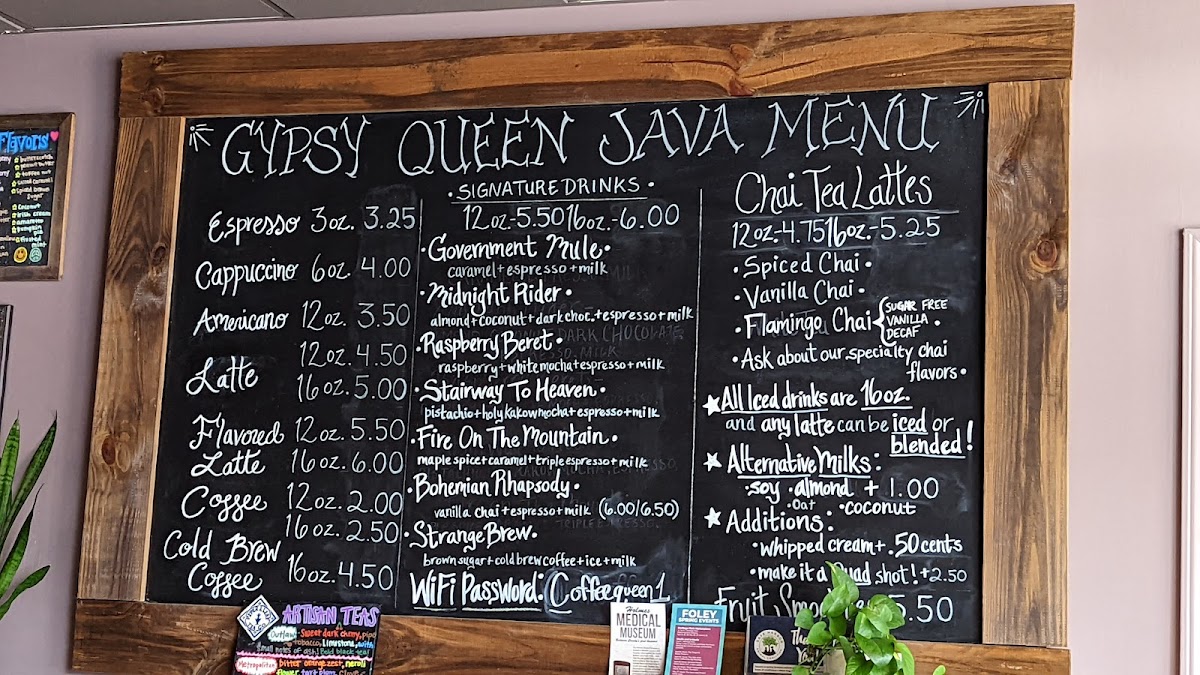 GYPSY QUEEN JAVA MENU
Espresso 3oz. 3.25
Cappuccino 6oz. 4.00
Americano 12oz. 3.50
Latte 12oz. 4.50
16oz. 5.00
Flavored Latte 12oz. 5.50
16oz. 6.00
Coffee 12oz. 2.00
16oz. 2.50
Cold Brew
Coffee 16oz. 4.50
• SIGNATURE DRINKS •
12oz-5.50 16oz.-6.00
• Government Mule •
caramel + espresso + milk
• Midnight Rider •
almond + coconut + dark choc. + espresso + milk
• Raspberry Beret •
raspberry + white mocha + espresso + milk
• Stairway To Heaven •
pistachio + holy kakow mocha + espresso + milk
• Fire On The Mountain •
maple spice + caramel + triple espresso + milk
• Bohemian Rhapsody •
vanilla chai + espresso + milk (6.00/6.50)
• Strange Brew •
brown sugar + cold brew coffee + ice + milk
WiFi Password: Coffeequeen1
Chai Tea Lattes
12oz-4.75 16oz-5.25
• Spiced Chai •
• Vanilla Chai •
• Flamingo Chai { SUGAR FREE
VANILLA
DECAF •
• Ask about our specialty chai
flavors •
★ All Iced drinks are 16oz.
and any latte can be iced or
blended!
★ Alternative Milks:
• soy • almond + 1.00
• Oat • coconut
★ Additions:
• whipped cream + .50 cents
• make it a quad shot! + 2.50
Fruit 5.50
Flavors
butterscotch
peanut butter
toffee nut
salted caramel
spiced brown
sugar
coconut
irish cream
amaretto
pumpkin
pie
frosted
mint
ARTISAN TEAS
Outlaw: Sweet dark cherry, piped
tobacco, limestone, with
small notes of ash! Bold black tea!
Metropolitan: bitter orange zest, neroli
Holmes
MEDICAL
MUSEUM
FOLEY
SPRING EVENTS